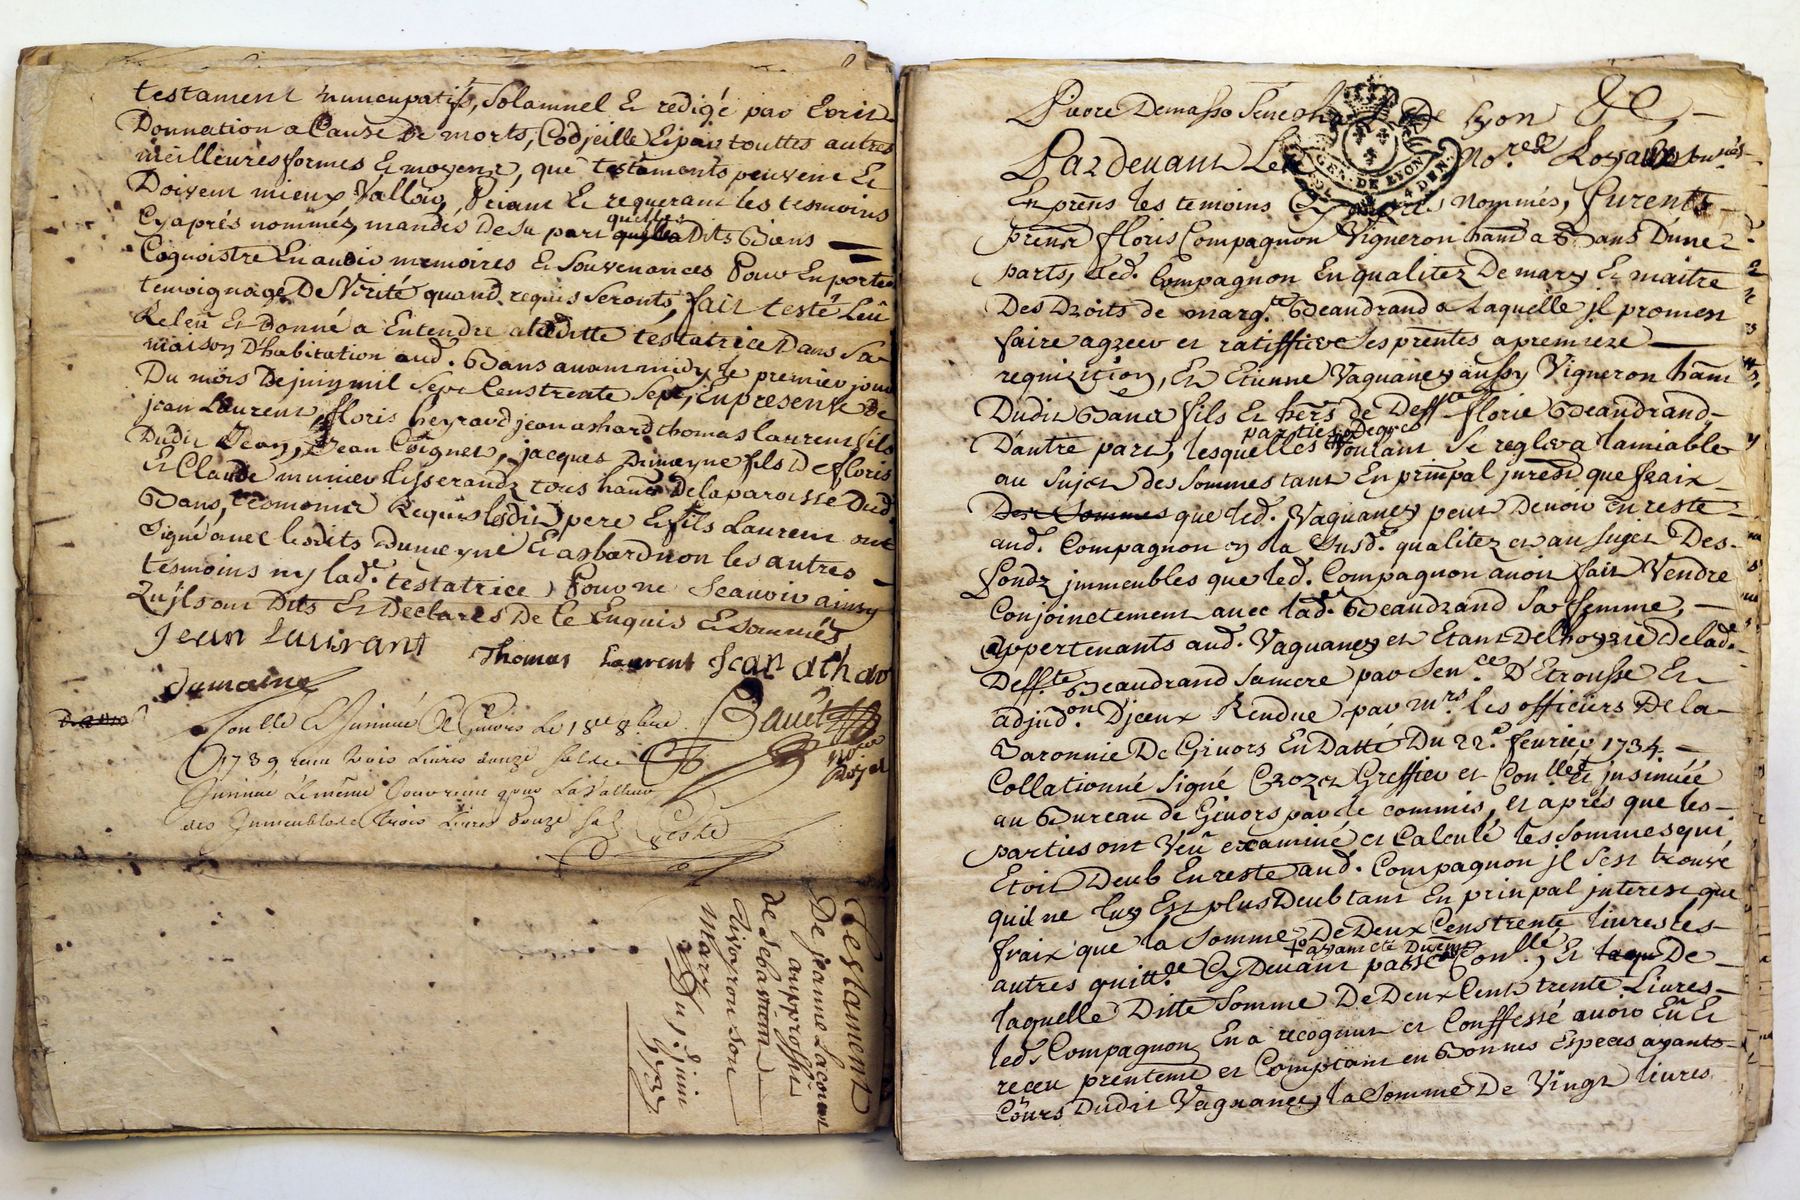 testament nuncupatif, Solamnel & redigé par Ecrit
Donnation a Cause de morts, Codjeille & par touttes autres
meilleures formes & moyens, que testaments peuvent &
Doivent mieux Valloir, Priant & requerant les tesmoins
Cy aprés nommés, mandés de sa part quelles Dits Biens
Cognoistre En avoir memoires & Souvenances Pour En porter
temoignage De Vérité quand requis Seronts, fait testé Leû
Releû & Donné a Entendre a laditte téstatrice Dans Sa
maison D'habitation aud. Bans avant midy le premier jour
Du mois De juin mil Sept Cens trente Sept, En presence de
jean Laurent, floris heyraud jean athard thomas laurent fils
Dudit Jean, Jean Coignet, jacques Dumayne fils De floris
& Claude munier tisserandz tous hants De la paroisse Dud.
Bans, temoins Requis lesdits pere & fils Laurent ont
Signé avec lesdits Dumeyne & athard non les autres
tesmoins ny lad.e téstatrice, Pour ne Scavoir ainsy
Qu'ils ont Dits & Declarés De ce Enquis & sommés
Jean Laurant
Thomas Laurent Jean athar
dumaine
Conllé & Insinué A Givors Le 18e 8bre
1739, reçu trois Livres douze sols
Insinué Le même Jour pour La Valleur
des Immeubles trois Livres douze sol
Testament
De jeanne Lacour
au proffit
de sebastien
Vivoyron son
Mary
Du 1. juin
1737
De Lyon &c,
GEN. DE LYON
4 DEN.
Pardevant Le No.re Royal Soussigné
En prens les temoins Cy aprés nommés, furents
prent floris Compagnon Vigneron hant a Bans D'une
parts, led. Compagnon En qualitez De mary & maitre
Des Droits de marg.te Beaudrand a Laquelle jl promen
faire agreer et ratiffier Ses prentes a premiere
requizition, Et Etienne Vaguaney aussy Vigneron hant
Dudit Bans fils & hers de Deffte florie Beaudrand
D'autre part, lesquelles parties De gré Voulant Se regler a lamiable
au Sujet des Sommes tant En prinpal jnterest que fraix
Des Sommes que led. Vaguaney peut Devoir En reste
aud. Compagnon En la Susd. qualitez et au Sujet Des
fondz jmmeubles que led. Compagnon avoit fait Vendre
Conjoinctement avec lad. Beaudrand Sa femme,
appertenants aud. Vaguaney et Etant De l'hoyrie De lad.
Deff.te Beaudrand Sa mere par Sen.ce D'Etrousse Et
adjud.on D'jceux Rendue par m.rs les officiers De la
Baronnie De Givors En Datte Du 22.e fevrier 1734
Collationné Signé Crozet Greffier et Con.llé & jnsinuée
au Bureau de Givors par le commis, et aprés que les
parties ont Veû examiné et Calculé les Sommes qui
Etoit Deub En reste aud. Compagnon jl S'est trouvé
quil ne luy Est plus Deub tant En prinpal jnterest que
fraix que la Somme De Deux Cens trente livres les
autres quitt.ce Cy Devant passé ayant eté Con.llé, Et De
laquelle Ditte Somme De Deux Cents trente Livres
led. Compagnon En a recognut et Conffessé avoir Eû &
receu prentemt et Comptant en Bonnes Especes ayants
Cours Dudit Vaguaney la Somme De Vingt livres